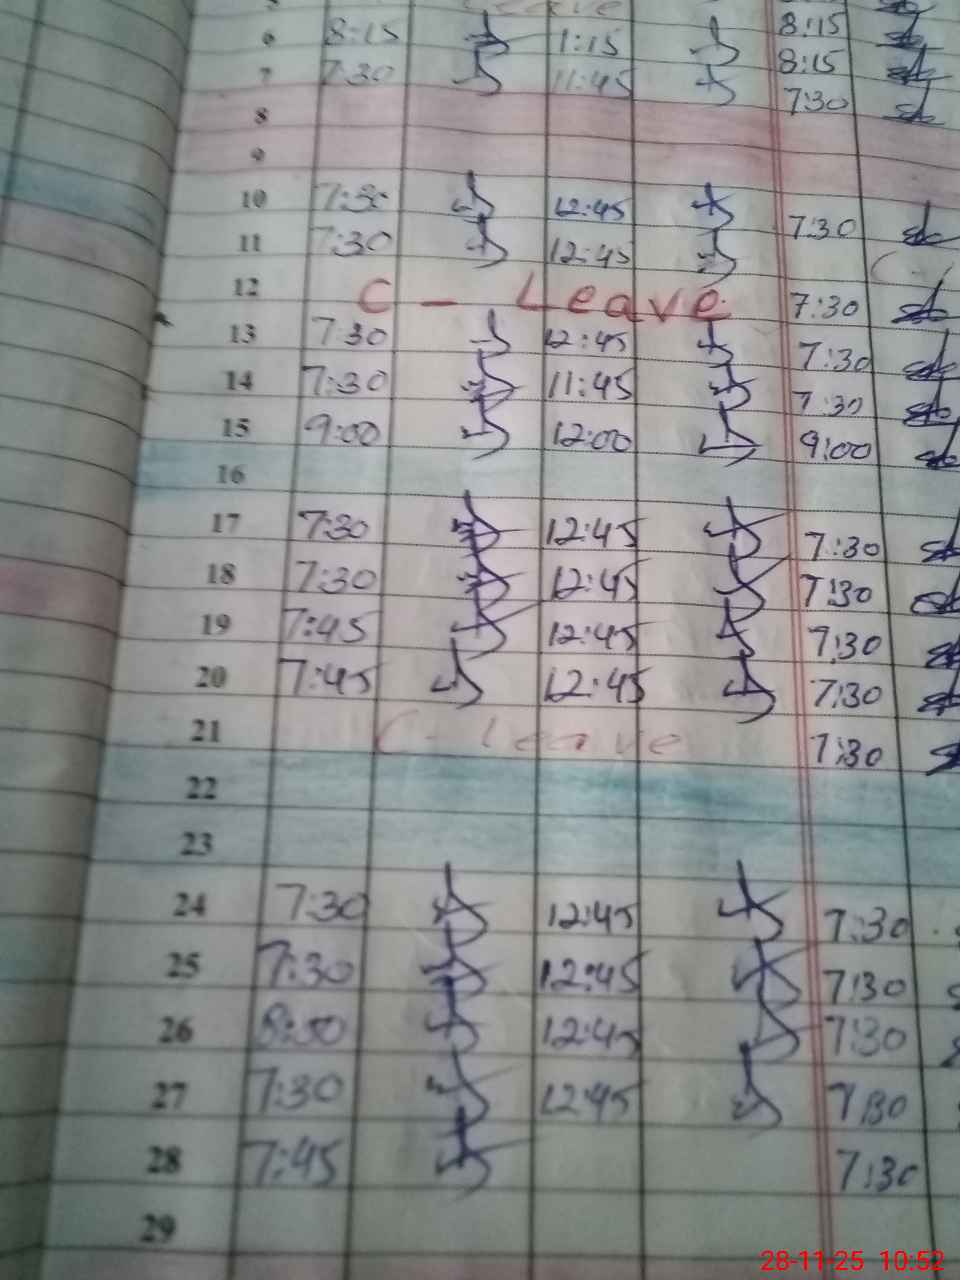 Leave
6 8:15 1:15 8:15
7 7:30 11:45 8:15
8 7:30
9
10 7:30 12:45 7:30
11 7:30 12:45
12 C - Leave 7:30
13 7:30 12:45 7:30
14 7:30 11:45 7:30
15 9:00 12:00 9:00
16
17 7:30 12:45 7:30
18 7:30 12:45 7:30
19 7:45 12:45 7:30
20 7:45 12:45 7:30
21 C - leave 7:30
22
23
24 7:30 12:45 7:30
25 7:30 12:45 7:30
26 12:45 7:30
27 7:30 12:45 7:30
28 7:45 7:30
29
28-11-25 10:52